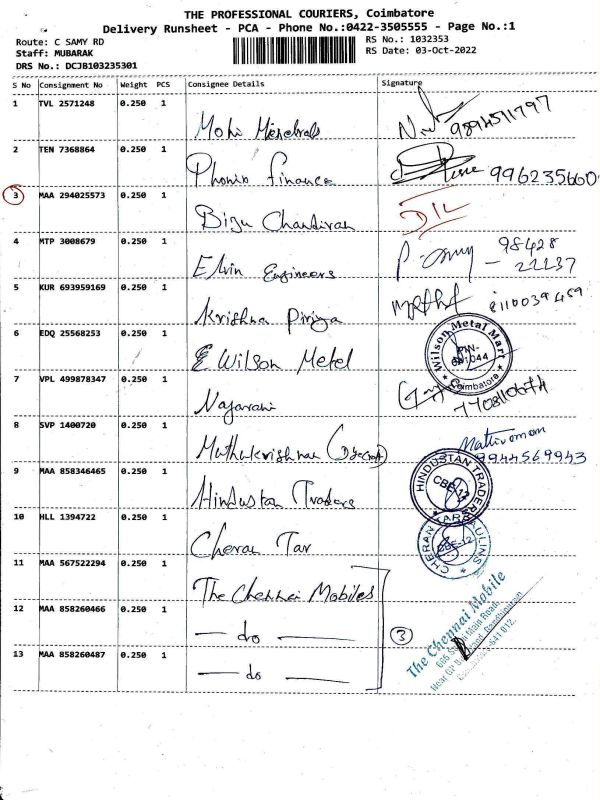 THE PROFESSIONAL COURIERS, Coimbatore
Delivery Runsheet - PCA - Phone No.:0422-3505555 - Page No.:1
Route: C SAMY RD
RS No.: 1032353
Staff: MUBARAK
RS Date: 03-Oct-2022
DRS No.: DCJB103235301
S No Consignment No Weight PCS Consignee Details Signature
1 TVL 2571248 0.250 1
9894511797
2 TEN 7368864 0.250 1
Phonix finance 996235660
3 MAA 294025573 0.250 1
D/L
4 MTP 3008679 0.250 1
98428
Elvin Engineers 22137
5 KUR 693959169 0.250 1
Krishna Priya
6 EDQ 25568253 0.250 1
Wilson Metal Mart
E Wilson Metel
Coimbatore
7 VPL 499878347 0.250 1
8 SVP 1400720 0.250 1
9944569943
9 MAA 858346465 0.250 1
HINDUSTAN TRADERS
CBE-12
Hindustan Traders
10 HLL 1394722 0.250 1
CHERAN TARPAULINS
CBE-12
Cheran Tar
11 MAA 567522294 0.250 1
The Chennai Mobiles
12 MAA 858260466 0.250 1
— do —
3
The Chennai Mobile
13 MAA 858260487 0.250 1
— do —